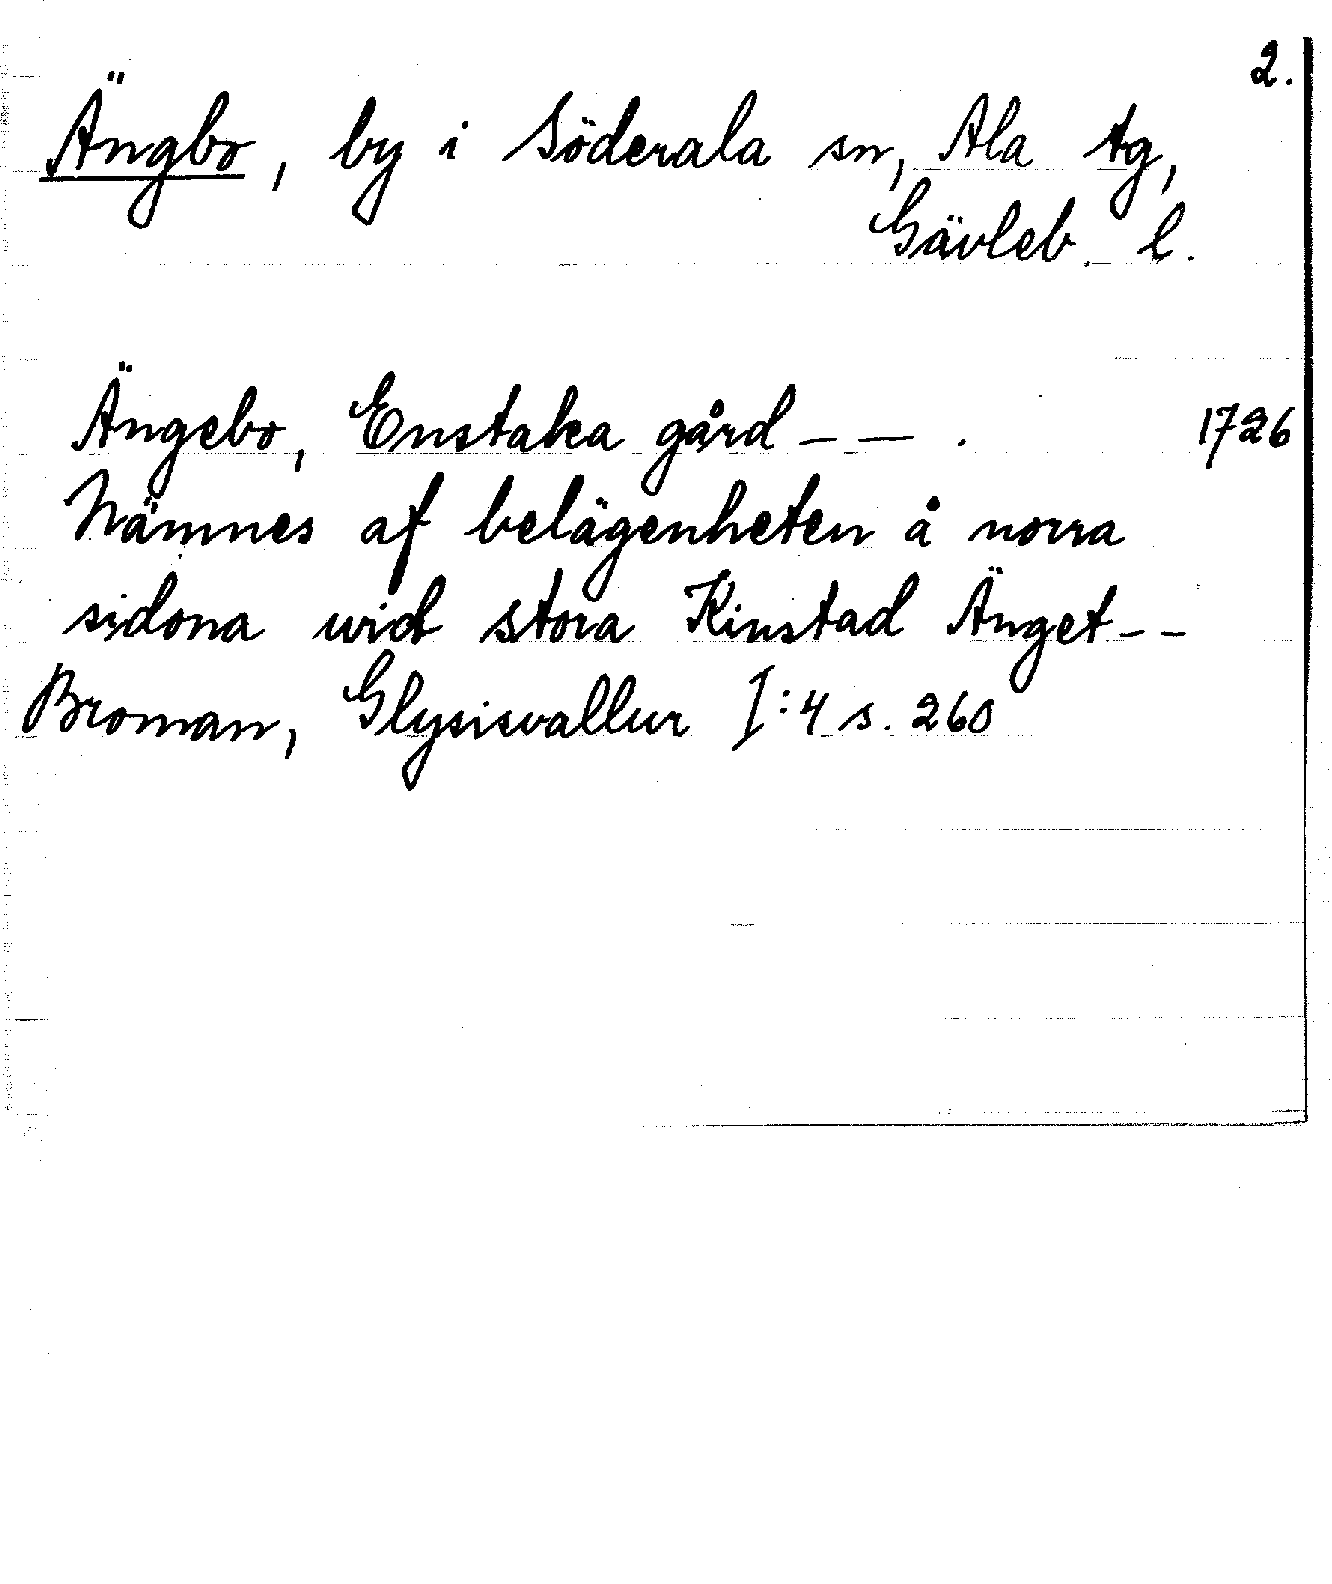 2.
Ängbo, by i Söderala sn, Ala tg,
Gävleb. l.
Ängebo, Enstaka gård - - . 1726
Nämnes af belägenheten å norra
sidona wid stora Kinstad Änget - -
Broman, Glysisvallur I:4 s. 260